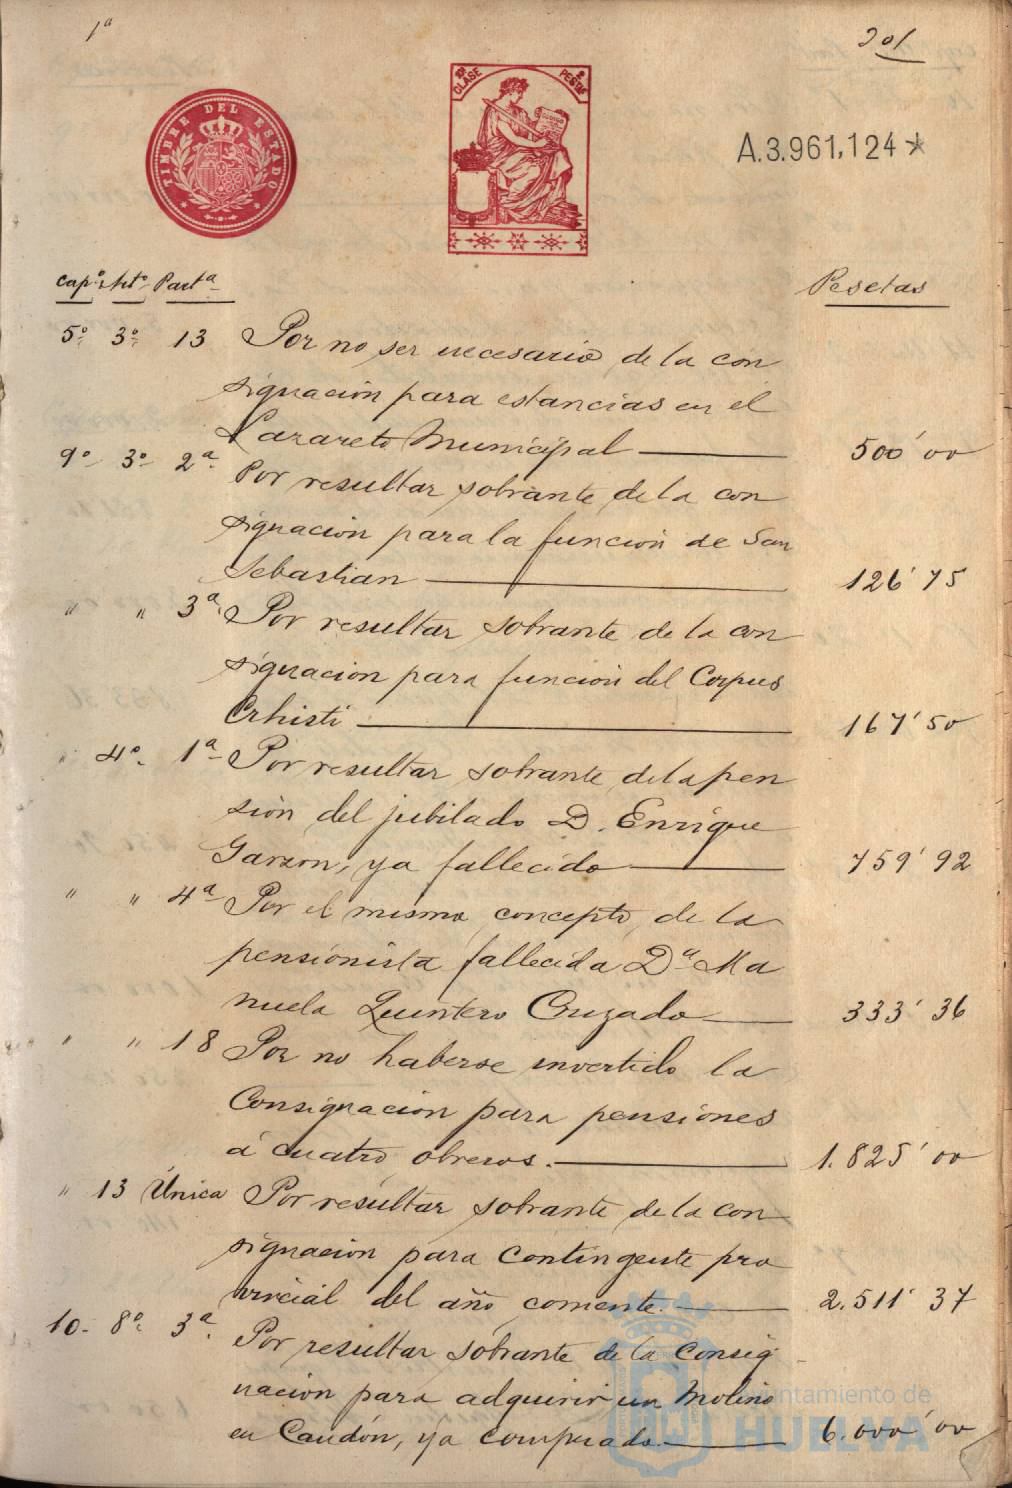 1ª
201
TIMBRE DEL ESTADO
10ª CLASE
2 PESETAS
A.3.961,124*
Capº Artº Partª
Pesetas
5º 3º 13 Por no ser necesario de la con
signación para estancias en el
Lazareto Municipal 500'00
9º 3º 2ª Por resultar sobrante de la con
signacion para la funcion de San
Sebastian 126'75
" " 3ª Por resultar sobrante de la con
signacion para funcion del Corpus
Crhisti 167'50
" 4º 1ª Por resultar sobrante de la pen
sión del jubilado D. Enrique
Garzon, ya fallecido 759'92
" " 4ª Por el mismo concepto de la
pensionista fallecida Dª Ma
nuela Quintero Cruzado 333'36
" " 18 Por no haberse invertido la
Consignacion para pensiones
á cuatro obreros. 1.825'00
" 13 Única Por resultar sobrante de la con
signacion para Contingente pro
vincial del año corriente. 2.511'37
10 8º 3ª Por resultar sobrante de la Consig
nacion para adquirir un Molino
en Candón, ya comprado 6.000'00
Ayuntamiento de
HUELVA